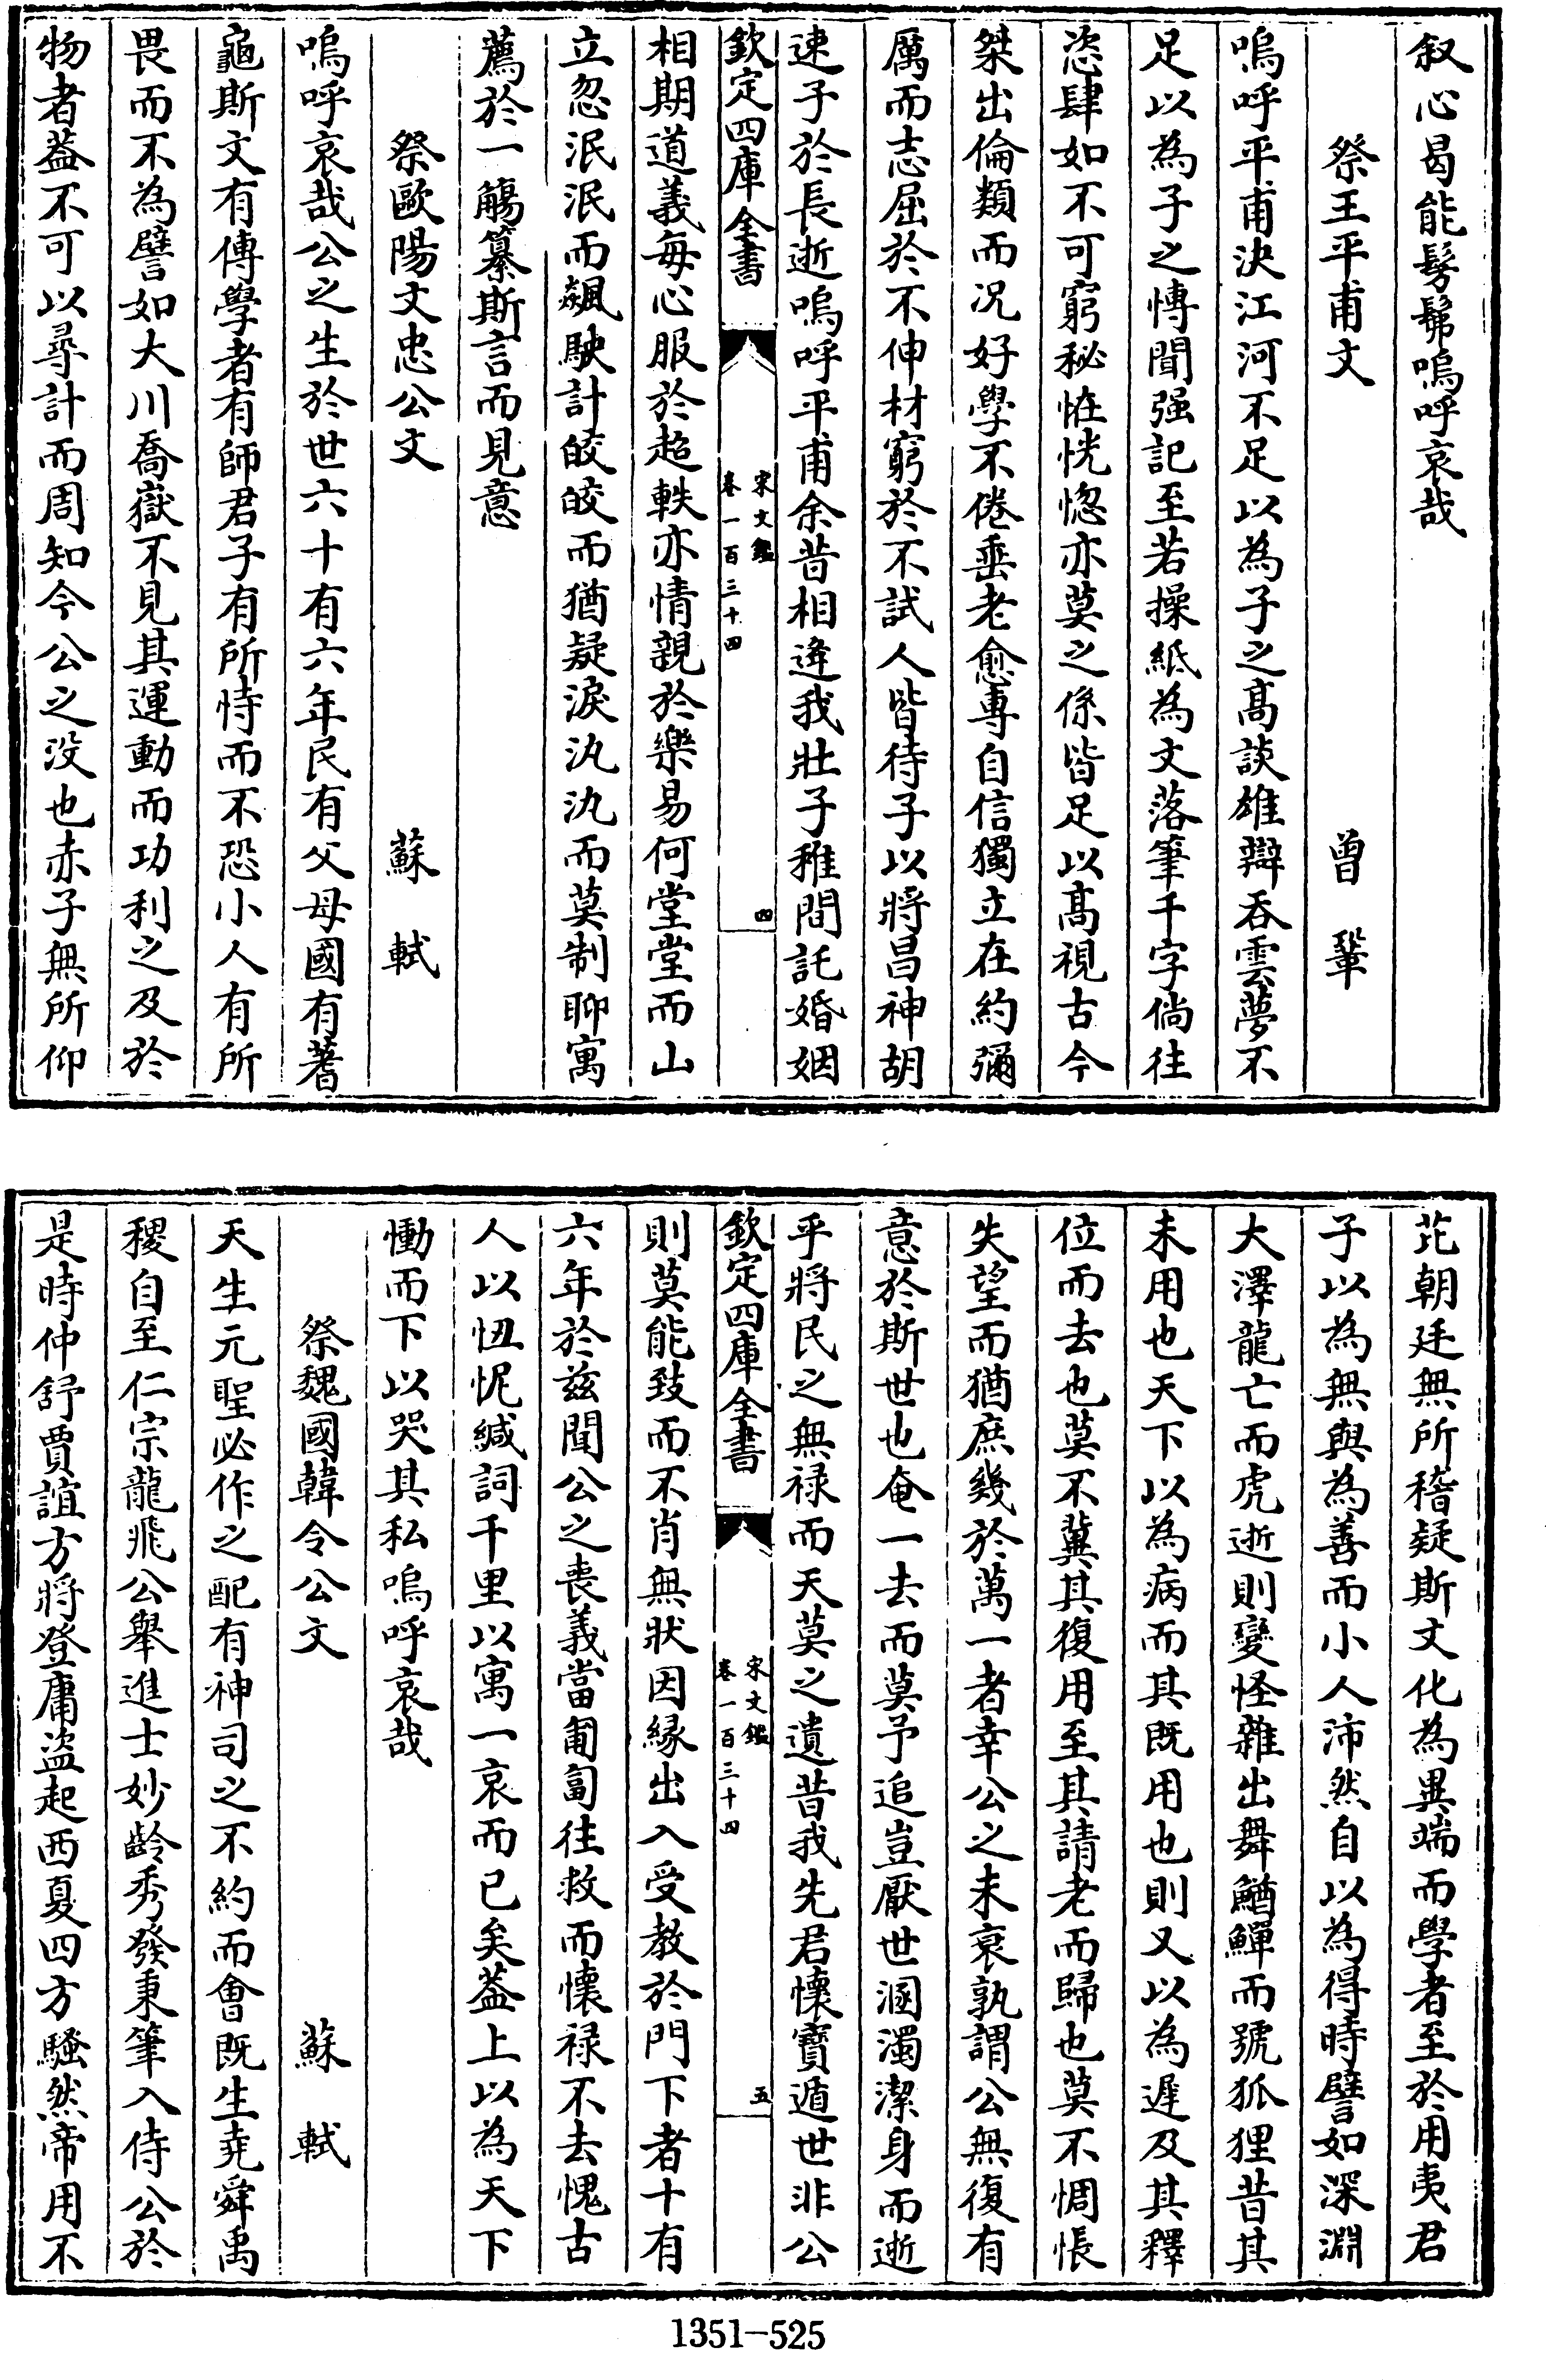 叙心曷能髣髴嗚呼哀哉
祭王平甫文 曾鞏
嗚呼平甫決江河不足以為子之髙談雄辯呑雲夢不
足以為子之博聞强記至若操紙為文落筆千字倘徃
恣肆如不可窮秘恠恍惚亦莫之係皆足以髙視古今
桀出倫類而况好學不倦垂老愈專自信獨立在約彌
厲而志屈於不伸材窮於不試人皆待子以將昌神胡
速子於長逝嗚呼平甫余昔相逄我壯子稚間託婚姻
欽定四庫全書 宋文鑑 卷一百三十四 四
相期道義毎心服於超軼亦情親於樂易何堂堂而山
立忽泯泯而飆駛計皎皎而猶疑淚汍汍而莫制聊寓
薦於一觴纂斯言而見意
祭歐陽文忠公文 蘇軾
嗚呼哀哉公之生於世六十有六年民有父母國有蓍
龜斯文有傳學者有師君子有所恃而不恐小人有所
畏而不為譬如大川喬嶽不見其運動而功利之及於
物者葢不可以尋計而周知今公之没也赤子無所仰
芘朝廷無所稽疑斯文化為異端而學者至於用夷君
子以為無與為善而小人沛然自以為得時譬如深淵
大澤龍亡而虎逝則變怪雜出舞鰌鱓而號狐狸昔其
未用也天下以為病而其既用也則又以為遲及其釋
位而去也莫不冀其復用至其請老而歸也莫不惆悵
失望而猶庶幾於萬一者幸公之未衰孰謂公無復有
意於斯世也奄一去而莫予追豈厭世溷濁潔身而逝
乎將民之無禄而天莫之遺昔我先君懐寳遁世非公
欽定四庫全書 宋文鑑 卷一百三十四 五
則莫能致而不肖無狀因縁出入受教於門下者十有
六年於兹聞公之喪義當匍匐徃救而懐禄不去愧古
人以忸怩緘詞千里以寓一哀而已矣葢上以為天下
慟而下以哭其私嗚呼哀哉
祭魏國韓令公文 蘇軾
天生元聖必作之配有神司之不約而會既生堯舜禹
稷自至仁宗龍飛公舉進士妙齡秀發秉筆入侍公於
是時仲舒賈誼方將登庸盗起西夏四方騷然帝用不
1351-525